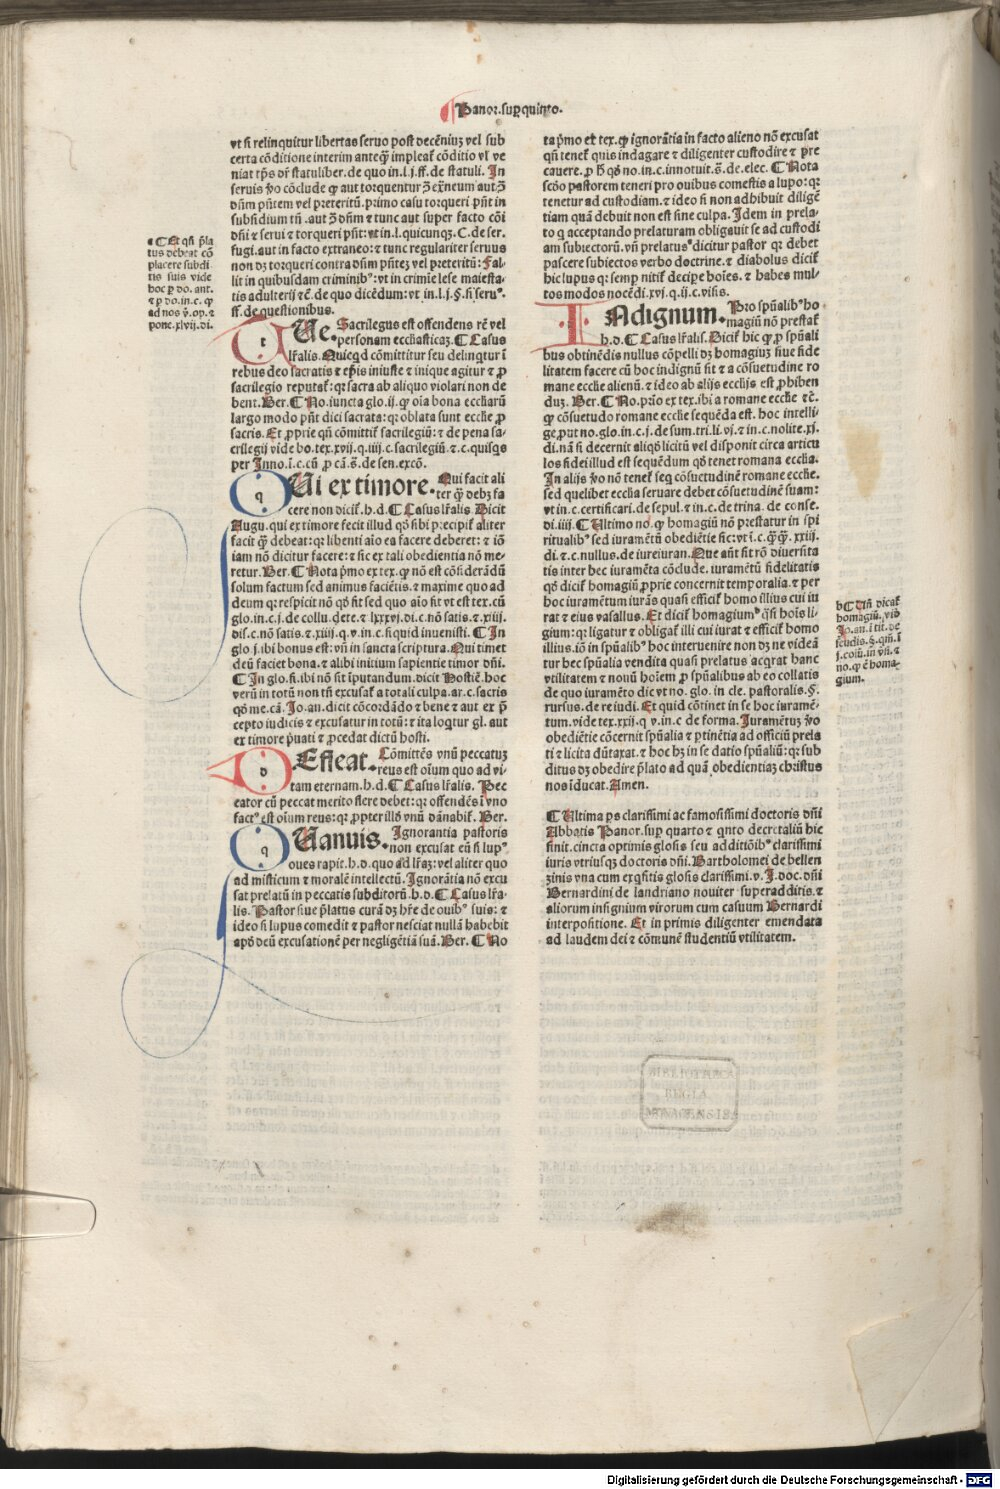 Panor.sup quinto.
vt si relinquitur libertas seruo post decēniuz vel sub
certa cōditione interim anteq̄ impleat̄ cōditio vl̄ ve
niat tp̄s dr̄ statuliber.de quo in.l.j.ff.de statuli. In
seruis v̄o cōclude ꝙ aut torquentur ꝯ ext̄neum aut.ꝯ
dn̄m pn̄tem vel preteritū.primo casu torqueri pn̄t in
subsidium tn̄ .aut ꝯ dn̄m ⁊ tunc aut super facto cōi
dn̄i ⁊ serui ⁊ torqueri pn̄t:vt in.l.quicunqꝫ.C.de ser.
fugi.aut in facto extraneo:⁊ tunc regulariter seruus
non dꝫ torqueri contra dn̄m pn̄tez vel preteritū:Fal-
lit in quibusdam criminibꝰ:vt in crimīe lese maiesta-
tis adulterij ⁊c̄.de quo dicēdum:vt in.l.j.§.fi seruꝰ.
ff.de questionibus.
¶ Et qn̄ p̄la
tus debeat cō
placere subdi
tis suis vide
hoc ꝑ do. ant.
⁊ ꝑ do.in.c. ꝙ
ad nos v̄.op.⁊
pone.xlvij.di.
t Ue. Sacrilegus est offendens rē vel
personam ecclĩasticaz. ¶ Casus
lr̄alis. Quicqd cōmittitur seu delinqtur ī
rebus deo sacratis ⁊ ep̄is iniuste ⁊ inique agitur ⁊ ꝓ
sacrilegio reputat̄:qꝛ sacra ab aliquo violari non de
bent. Ber. ¶ No.iuncta glo.ij.ꝙ oīa bona eccl̄iarū
largo modo pn̄t dici sacrata:qꝛ oblata sunt eccl̄ie ꝓ
sacris. Et ꝓprie qn̄ cōmittit̄ sacrilegiū:⁊ de pena sa-
crilegij vide bo.tex.xvij.q.iiij.c.sacrilegiū.⁊.c.quisqs
per Inno.ī.c.cū ꝓ cā.s̄.de sen.excō.
q Ui ex timore. Qui facit ali
ter q̄ debꝫ fa
cere non dicit̄.h.d. ¶ Casus lr̄alis. Dicit
Augu.qui ex timore fecit illud qō sibi precipit̄ aliter
facit q̄ debeat:qꝛ libenti aīo ea facere deberet:⁊ ō
iam nō dicitur facere:⁊ sic ex tali obedientia nō me-
retur. Ber. ¶ Nota p̄mo ex tex.ꝙ nō est cōsiderādū
solum factum sed animus faciētis.⁊ maxime quo ad
deum qꝛ respicit nō qō fit sed quo aīo fit vt est tex.cū
glo.in.c.j.de collu.dete.⁊ lxxxvj.di.c.nō satis.⁊.xiiij.
dis.c.nō satis.⁊.xiiij.q.v.in.c.si quid inuenisti. ¶ In
glo.j.ibi bonus est:vn̄ in sancta scriptura. Qui timet
deū faciet bona.⁊ alibi initium sapientie timor dn̄i.
¶ In glo.fi.ibi nō sit īputandum.dicit Hostiē.hoc
verū in totū non tn̄ excusat̄ a totali culpa.ar.c.sacris
qō me.cā. Jo.an.dicit cōcordādo ⁊ bene ⁊ aut ex p̄
cepto iudicis ⁊ excusatur in totū:⁊ ita loqtur gl. aut
ex timore p̄uati ⁊ ꝓcedat dictū hosti.
d Efleat. Cōmittēs vnū peccatuz
reus est oīum quo ad vi-
tam eternam.h.d. ¶ Casus lr̄alis. Pec
cator cū peccat merito flere debet:qꝛ offendēs ī vno
factꝰ est oīum reus:qꝛ ꝓpter illō vnū dānabit̄. Ber.
q Uanuis. Ignorantia pastoris
non excusat eū si lupꝰ
oues rapit.h.d.quo ad lr̄az:vel aliter quo
ad misticum ⁊ moralē intellectū. Ignorātia nō excu
sat prelatū in peccatis subditorū.h.d. ¶ Casus lr̄a-
lis. Pastor siue p̄latus curā dꝫ hr̄e de ouibꝰ suis:⁊
ideo si lupus comedit ⁊ pastor nesciat nullā habebit
apō deū excusationē per negligētiā suā. Ber. ¶ No
ta p̄mo ex tex.ꝙ ignorātia in facto alieno nō excusat
qn̄ tenet̄ quis indagare ⁊ diligenter custodire ⁊ pre
cauere.ꝓ h̄ qō no.in.c.innotuit.s̄.de elec. ¶ Nota
scōo pastorem teneri pro ouibus comestis a lupo:qꝛ
tenetur ad custodiam.⁊ ideo si non adhibuit diligē
tiam quā debuit non est sine culpa. Idem in prela-
to q acceptando prelaturam obligauit se ad custodi
am subiectorū.vn̄ prelatusᵃ dicitur pastor qꝛ debet
pascere subiectos verbo doctrine.⁊ diabolus dicit̄
hic lupus qꝛ semꝑ nitit̄ decipe hoīes. ⁊ habes mul-
tos modos nocēdi.xvj.q.ij.c.visis.
I Ndignum. Pro spūalibꝰ ho
magiū nō prestat̄
h.d. ¶ Casus lr̄alis. Dicit̄ hic ꝙ ꝓ spūali
bus obtinēdis nullus cōpelli dꝫ homagiuꝫ siue fide
litatem facere cū hoc indignū sit ⁊ a cōsuetudine ro
mane eccl̄ie alienū.⁊ ideo ab alijs eccl̄ijs est ꝓhiben
duz. Ber. ¶ No.p̄mo ex tex.ibi a romane eccl̄ie ⁊c̄.
ꝙ cōsuetudo romane eccl̄ie sequēda est. hoc intelli-
ge ꝓut no.glo.in.c.j.de sum.tri.li.vj.⁊ in.c.nolite.xj.
di.nā si decernit aliqō licitū vel disponit circa articu
los fidei illud est sequēdum qō tenet romana eccl̄ia.
In alijs v̄o nō tenet̄ seq cōsuetudinē romane eccl̄ie.
sed quelibet eccl̄ia seruare debet cōsuetudinē suam:
vt in.c.certificari.de sepul.⁊ in.c.de trina. de conse.
di.iiij. ¶ Ultimo no.ꝙ homagiū nō prestatur in spi
ritualibꝰ sed iuramētū obediētie sic:vt ī.c.q̄q̄.xxiij.
di.⁊.c.nullus.de iureiuran. Que aūt sit rō diuersita
tis inter hec iuramēta cōclude.iuramētū fidelitatis
qō dicit̄ homagiū ꝓprie concernit temporalia.⁊ per
hoc iuramētum iurās quasi efficit̄ homo illius cui iu
rat ⁊ eius vasallus. Et dicit̄ homagiumᵇ q̄si hoīs li-
gium:qꝛ ligatur ⁊ obligat̄ illi cui iurat ⁊ efficit̄ homo
illius.iō in spūalibꝰ hoc interuenire non dꝫ ne videā
tur hec spūalia vendita quasi prelatus acqrat hanc
vtilitatem ⁊ nouū hoīem ꝓ spūalibus ab eo collatis
de quo iuramēto dic vt no. glo. in cle. pastoralis.§.
rursus.de re iudi. Et quid cōtinet in se hoc iuramē-
tum.vide tex.xxij.q v.in.c de forma. Iuramētuz v̄o
obediētie cōcernit spūalia ⁊ ꝑtinētia ad officiū prela
ti ⁊ licita dūtaxat.⁊ hoc hꝫ in se datio spūaliū:qꝛ sub
ditus dꝫ obedire p̄lato ad quā obedientiaꝫ christus
nos īducat. Amen.
b ¶ Un̄ dicat̄
homagiū. vid̄
Jo.an.ī tit.de
feudis.§.qm̄.ī
j.colū.in v̄si.⁊
no.ꝙ ē homa-
gium.
¶ Ultima ps clarissimi ac famosissimi doctoris dn̄i
Abbatis Panor.suꝑ quarto ⁊ qnto decretaliū hic
finit.cincta optimis glosis seu additiōibꝰ clarissimi
iuris vtriusqꝫ doctoris dn̄i. Bartholomei de bellen
zinis vna cum exqsitis glosis clarissimi.v. J.doc.dn̄i
Bernardini de landriano nouiter superadditis.⁊
aliorum insignium virorum cum casuum Bernardi
interpositione. Et in primis diligenter emendata
ad laudem dei ⁊ cōmunē studentiū vtilitatem.
BIBLIOTHECA
REGIA
MONACENSIS
Digitalisierung gefördert durch die Deutsche Forschungsgemeinschaft - DFG